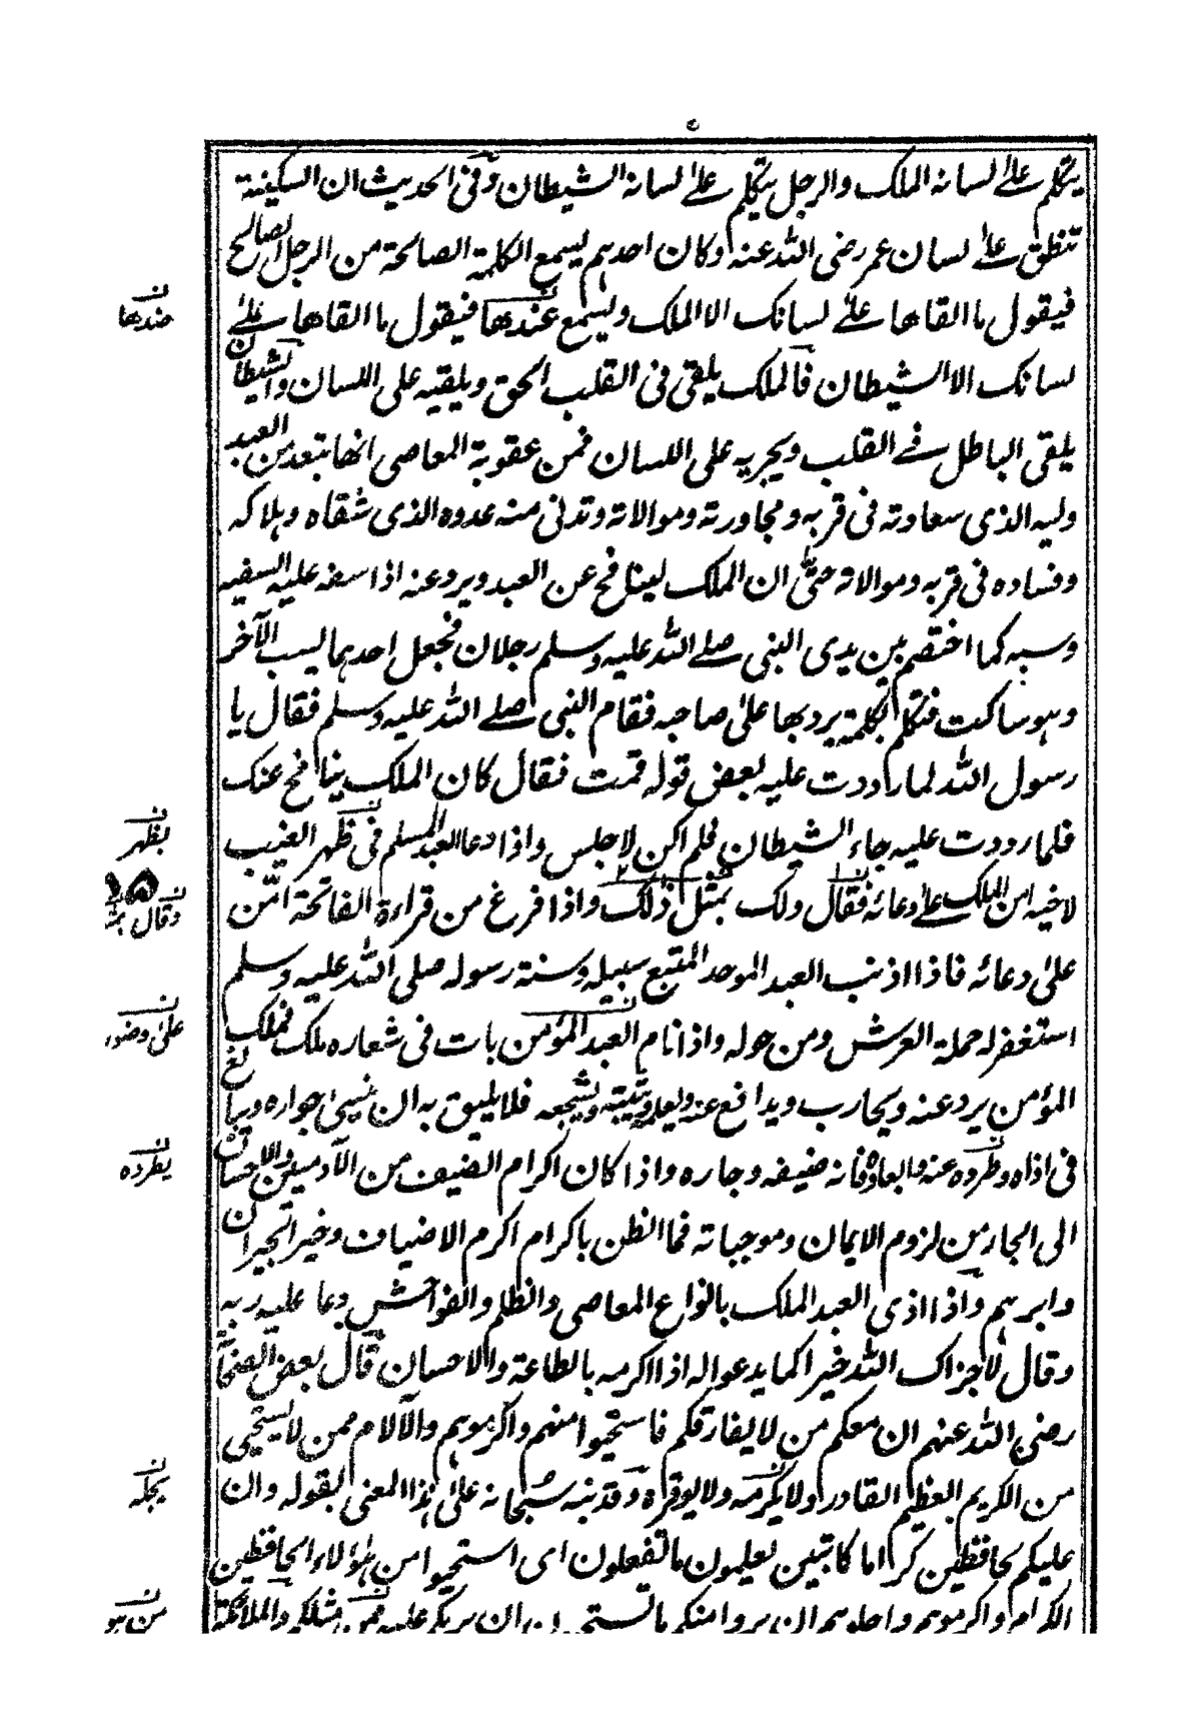 يتكلم على لسانه الملك والرجل يتكلم على لسانه الشيطان وفى الحديث ان السكينة
تنطق على لسان عمر رضى الله عنه وكان احدهم يسمع الكلمة الصالحة من الرجل الصالح
فيقول ما القاها على لسانك الا الملك ويسمع عندها فيقول ما القاها على
ضدها
لسانك الا الشيطان فالملك يلقى فى القلب الحق ويلقيه على اللسان والشيطان
يلقى الباطل فى القلب ويجريه على اللسان فمن عقوبة المعاصى انها تبعد من العبد
وليه الذى سعادته فى قربه ومجاورته وموالاته وتدنى منه عدوه الذى شقاه وهلاكه
وفساده فى قربه وموالاته حتى ان الملك لينافح عن العبد ويرد عنه اذا سفه عليه السفيه
وسبه كما اختصم بين يدى النبى صلى الله عليه وسلم رجلان فجعل احدهما يسب الآخر
وهو ساكت فتكلم بكلمة يرد بها على صاحبه فقام النبى صلى الله عليه وسلم فقال يا
رسول الله لما رددت عليه بعض قوله قمت فقال كان الملك ينافح عنك
فلما رددت عليه جاء الشيطان فلم اكن لاجلس واذا دعا العبد المسلم فى ظهر الغيب
بظهر
لاخيه امن الملك على دعائه فقال ولك بمثل ذلك واذا فرغ من قراءة الفاتحة امّن
وقال
على دعائه فاذا اذنب العبد الموحد المتبع سبيله وسنة رسوله صلى الله عليه وسلم
استغفر له حملة العرش ومن حوله واذا نام العبد المؤمن بات فى شعاره ملك فملك
على وضوء
المؤمن يرد عنه ويحارب ويدافع عنه ويعلمه ويثبته ويشجعه فلا يليق به ان يسيئ جواره ويبالغ
فى اذاه وطرده عنه وابعاده فانه ضيفه وجاره واذا كان اكرام الضيف من الآدميين والاحسان
يطرده
الى الجار من لزوم الايمان وموجباته فما الظن باكرام اكرم الاضياف وخير الجيران
وابرهم واذا اذى العبد الملك بانواع المعاصى والظلم والفواحش دعا عليه ربه
وقال لاجزاك الله خيرا كما يدعو له اذا اكرمه بالطاعة والاحسان قال بعض الصحابة
رضى الله عنهم ان معكم من لا يفارقكم فاستحيوا منهم واكرموهم والآلام ممن لا يستحيى
من الكريم العظيم القادر ولا يكرمه ولا يوقره وقد نبه سبحانه على هذا المعنى بقوله وان
يجله
عليكم لحافظين كراما كاتبين يعلمون ما تفعلون اى استحيوا من هؤلاء الحافظين
الكرام واكرموهم واجلوهم ان يروا منكم ما تستحيون ان يريكم عليه ممن مثلكم والملائكة
من هو